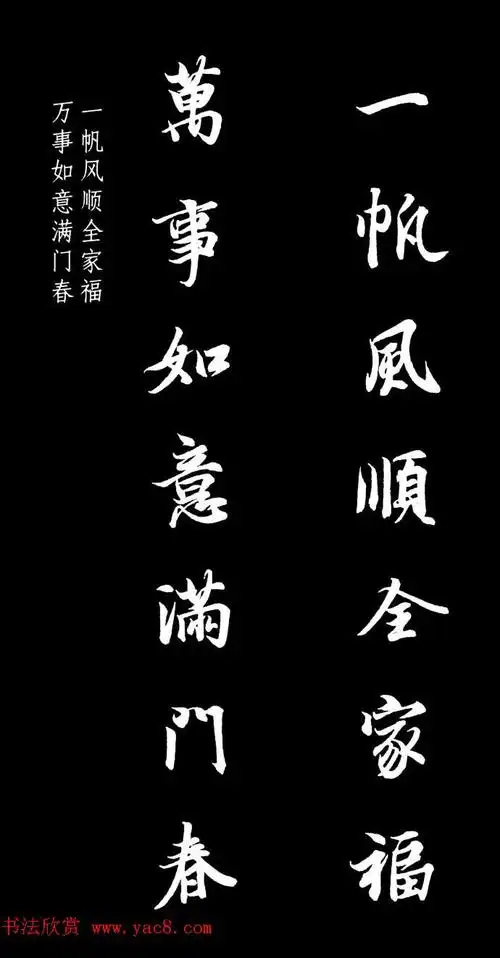 一帆風順全家福
萬事如意滿門春
一帆风顺全家福
万事如意满门春
书法欣赏 www.yac8.com